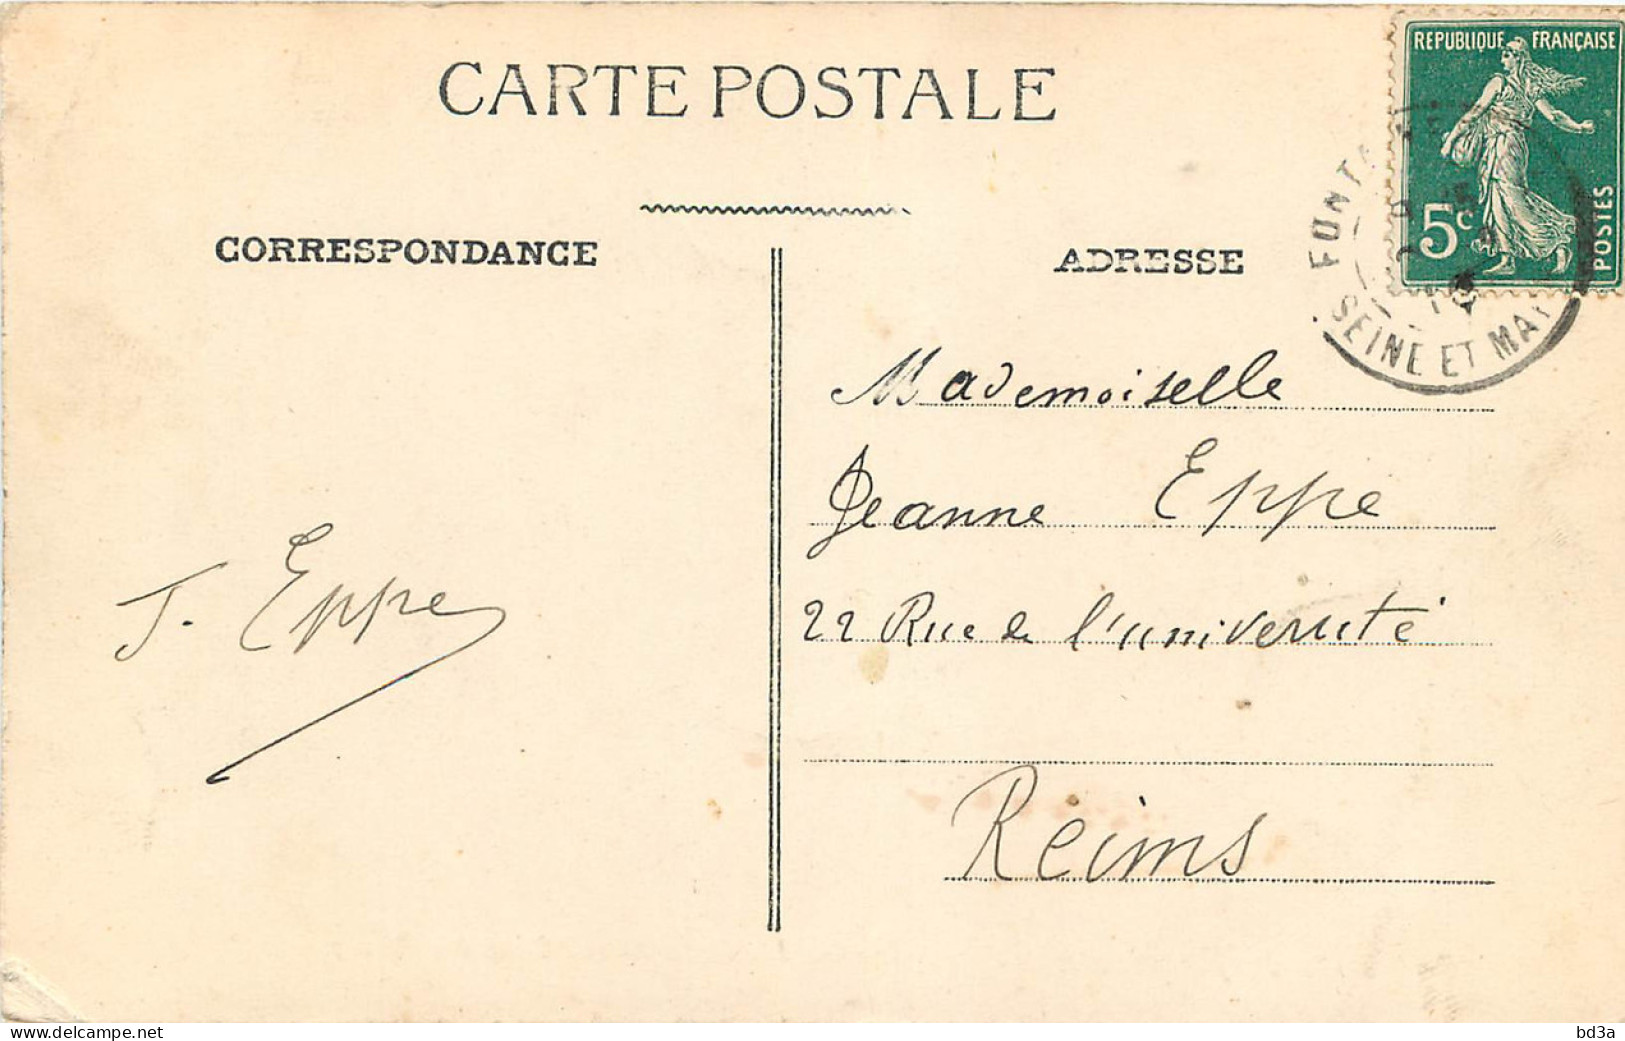 CARTE POSTALE
RÉPUBLIQUE FRANÇAISE
5c
POSTES
SEINE ET MA
CORRESPONDANCE
ADRESSE
Mademoiselle
Jeanne Eppe
22 Rue de l'université
Reims
J. Eppe
www.delcampe.net
bd3a